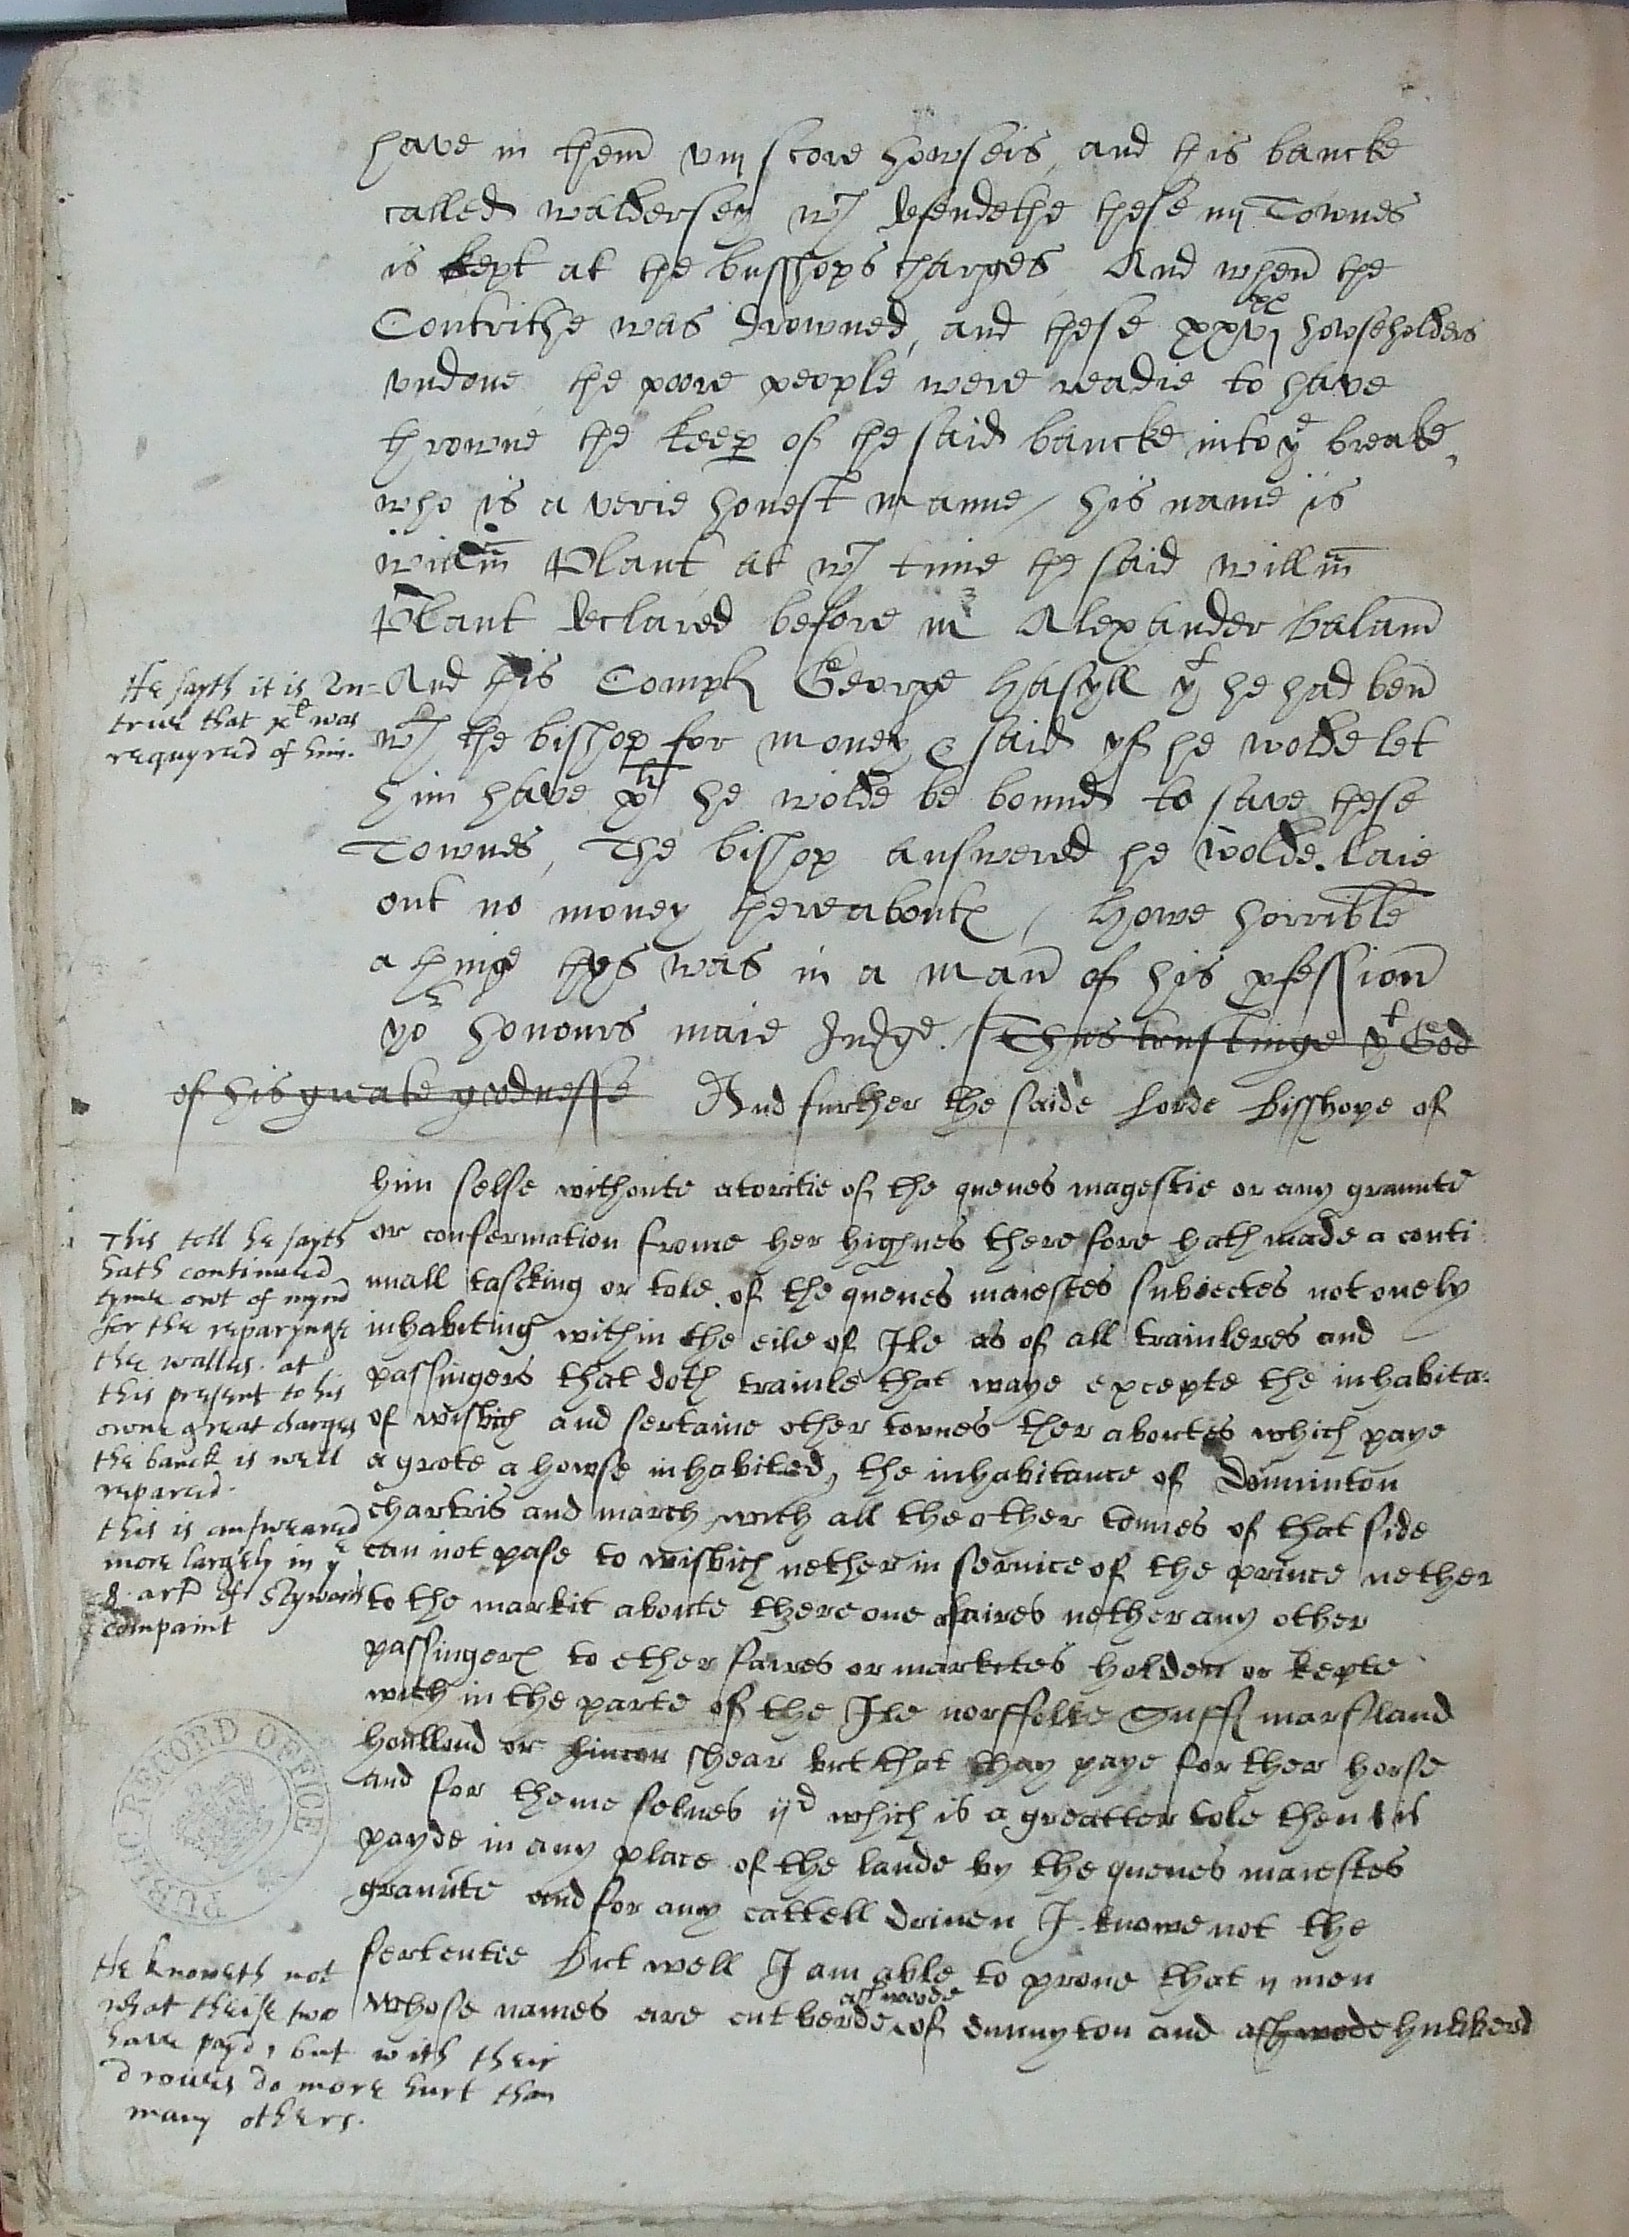 have in them viij score howseis, and this bancke
called waldersey wch defendethe these iiij Townes
is kept at the busshops charges And when the
Contrithe was drowned, and these xxvj xx howseholders
vndone the poore people were readie to have
throwne the keep of the said bancke into ye breake,
who is a verie honest manne / his name is
willm Plant at wch time the said willm
Plant declared before mr Alexander balam
He sayth it is vn=
true that xli was
requyred of him.
And this Compt George Hasyll yt he had ben
wth the bishop for money & said yf he wolde let
him have xli he wolde be bound to save these
Townes, The bishop answered he wolde laie
out no money thereaboutes / Howe horrible
a thinge thys was in a man of his pfession
yor honours maie Judge. / Thus trustinge yt God
of his greate goodnesse And further the saide Lorde Bisshope of
him selfe withoute atoritie of the quenes magestie or any graunte
This toll he sayth
hath continued
tyme owt of mynd
for the reparynge
the walles. at
this present to his
owne great charges
the banck is well
repared.
this is answeared
more largely in ye
8 art of Stywards
compaint
or confermation frome her highnes there fore hath made a conti
nuall tascking or tole of the quenes maiestes subiectes not onely
inhabiting within the eile of Ile as of all traiuleres and
passingers that doth traiule that waye excepte the inhabita=
of wisbich and sertaine other tounes ther aboutes which paye
a grote a howse inhabited, the inhabitance of Donninton
chartris and march with all the other tounes of that side
can not pase to wisbich nether in seruice of the prince nether
to the markit aboute there one afaires nether any other
passingers to ether faires or markites holden or kepte
with in the parte of the Ile norffolke Suff marsland
houllond or lincon shear but that thay paye for ther horse
and for theme selues ijd which is a greatter tole then is
payde in any place of the lande by the quenes maiestes
graunte and for any cattell driuen I knowe not the
He knoweth not
what theise two
have payd, but with their
droues do more hurt than
many others.
sertentie but well I am able to proue that ij men
ashwode
whose names are cutberde of dunnyton and ashwode hubberd
PUBLIC RECORD OFFICE